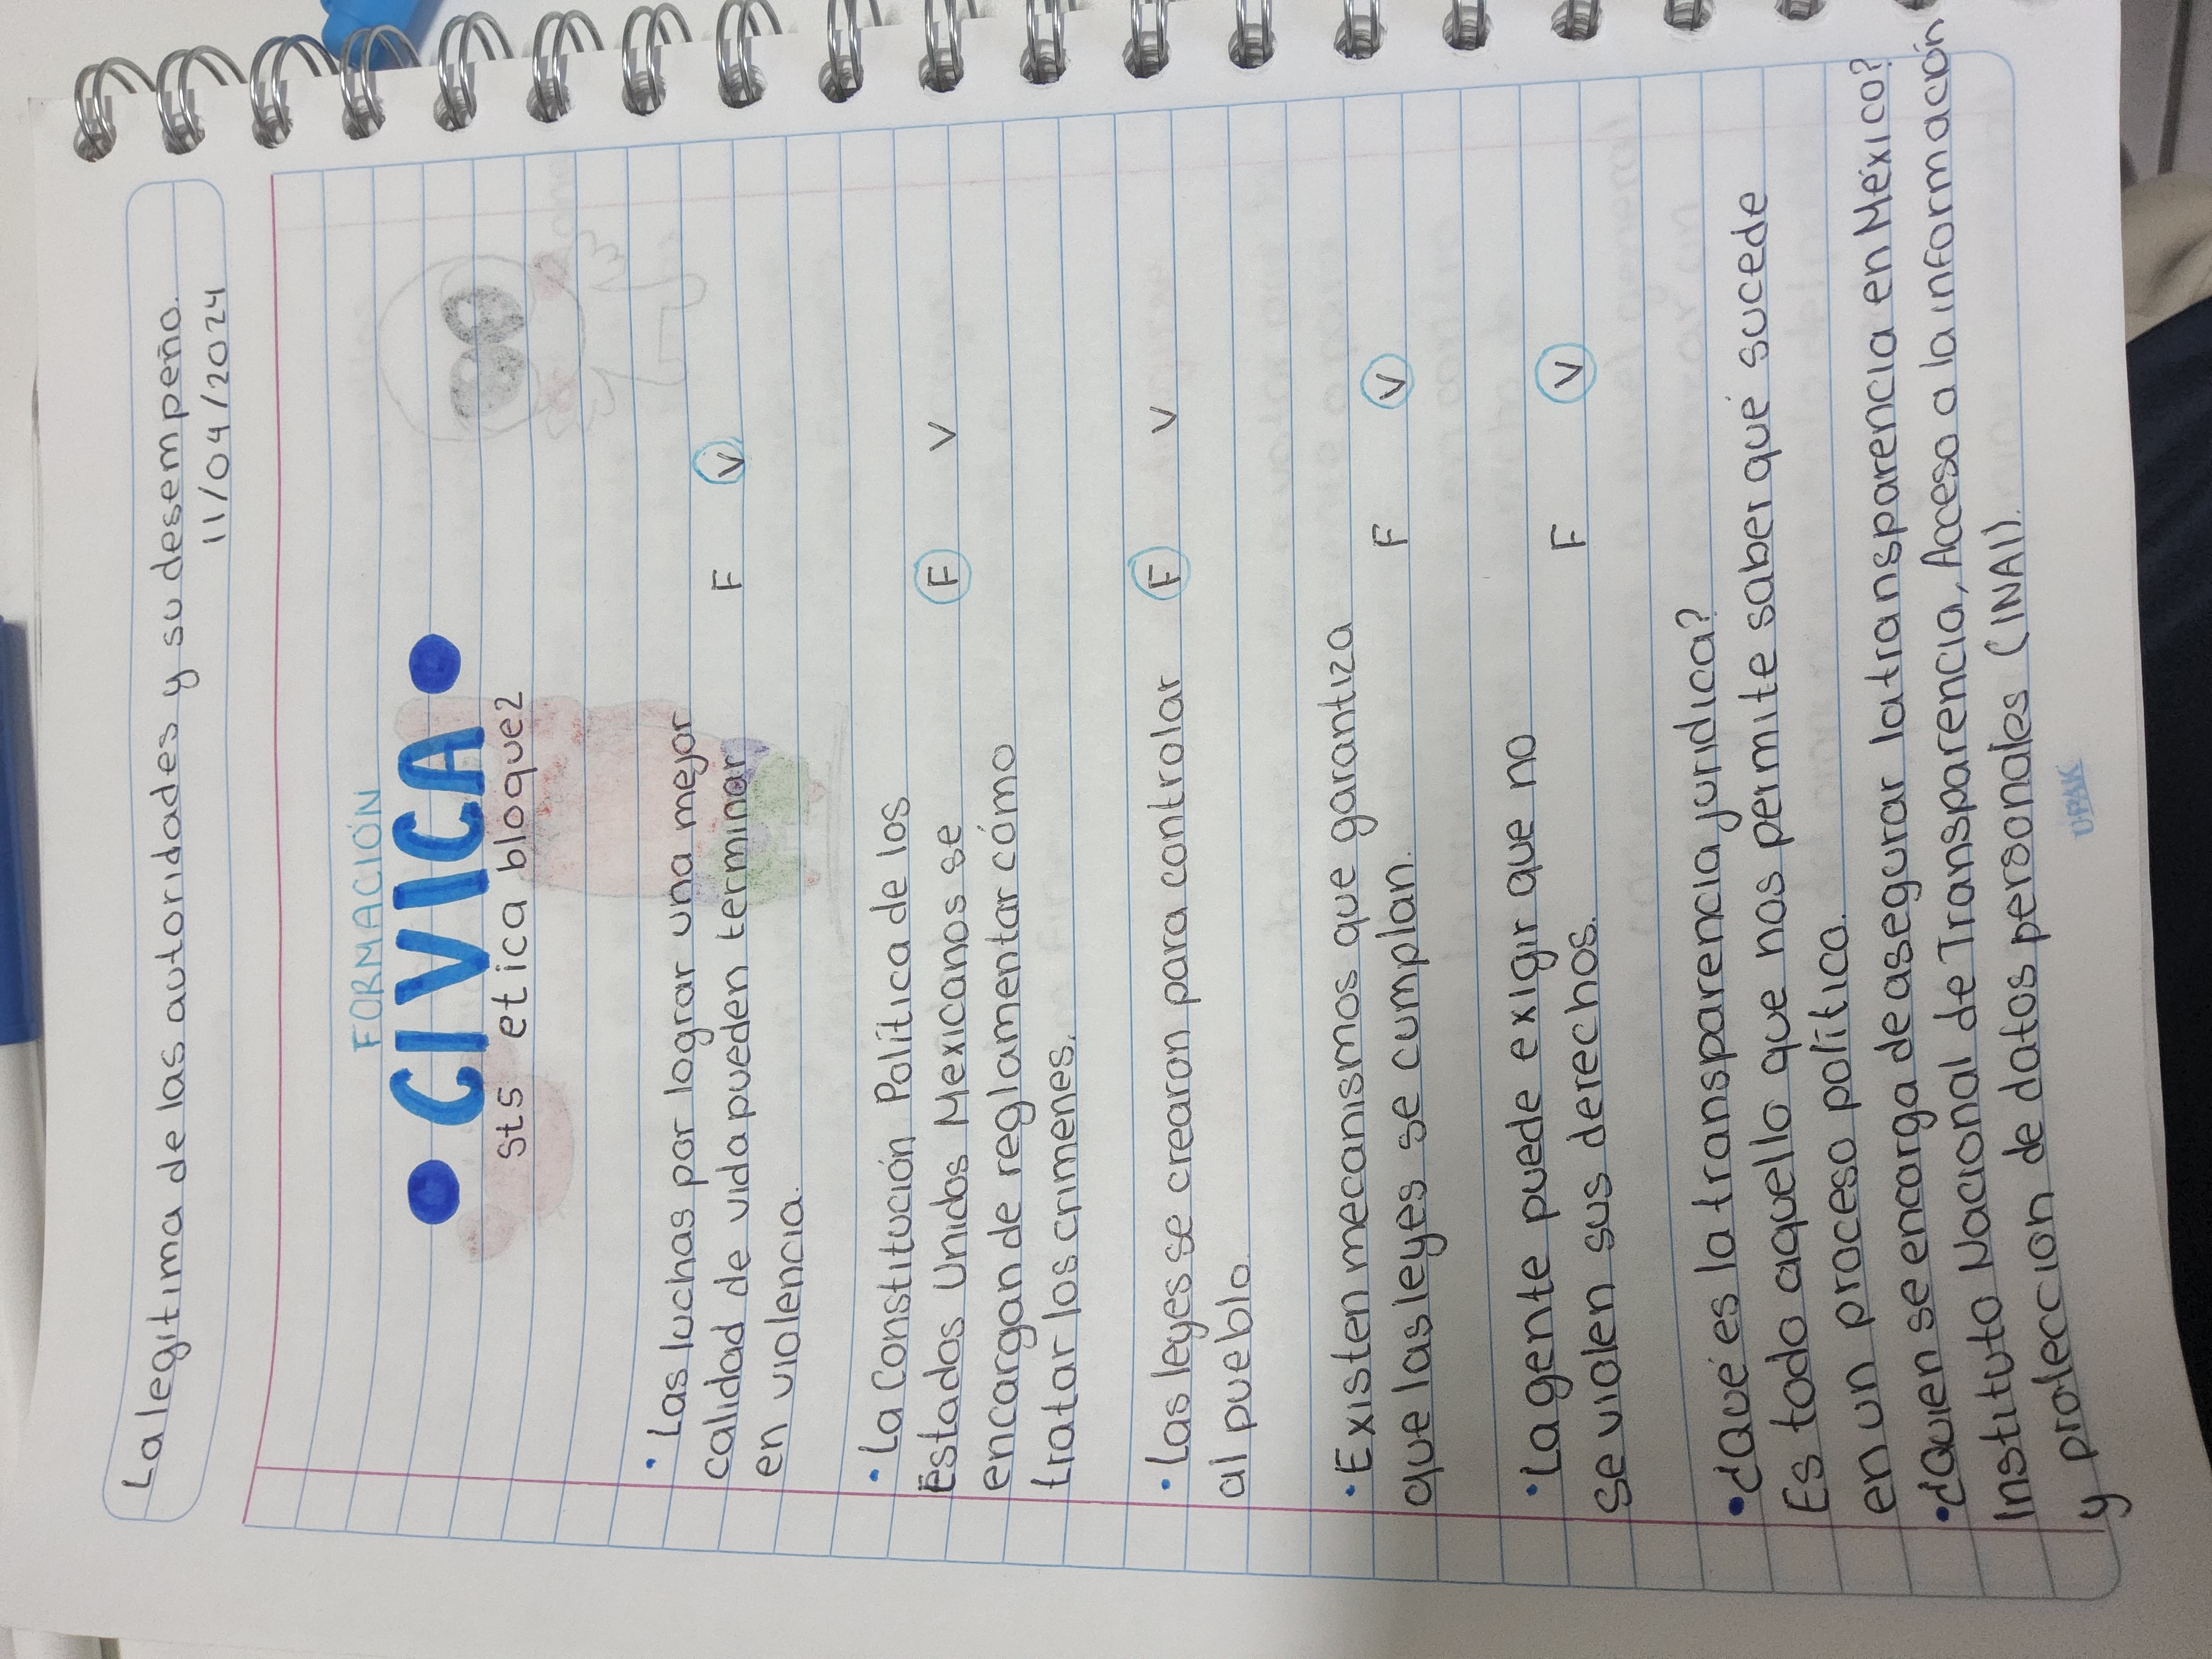 La legitima de las autoridades y su desempeño.
11/04/2024
FORMACIÓN
CIVICA
sts etica bloque2
• Las luchas por lograr una mejor
calidad de vida pueden terminar F V
en violencia.
• La Constitución Política de los
Estados Unidos Mexicanos se F V
encargan de reglamentar cómo
tratar los crimenes.
• Las leyes se crearon para controlar F V
al pueblo.
• Existen mecanismos que garantiza
que las leyes se cumplan. F V
• La gente puede exigir que no
se violen sus derechos. F V
• ¿Qué es la transparencia juridica?
Es todo aquello que nos permite saber qué sucede
en un proceso politico.
• ¿Quien se encarga de asegurar la transparencia en México?
Instituto Nacional de Transparencia, Acceso a la información
y proteccion de datos personales (INAI).